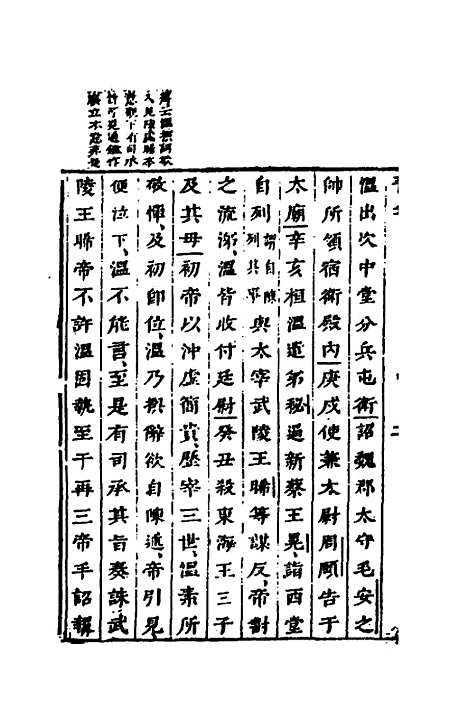 溫出次中堂分兵屯衛詔魏郡太守毛安之
帥所領宿衛殿內庚戌使兼太尉周頤告于
太廟辛亥桓溫遣弟秘逼新蔡王晃詣西堂
自列謂自陳列其事與太宰武陵王晞等謀反帝對
之流涕溫皆收付廷尉癸丑殺東海王三子
及其母初帝以沖虛簡貴歷宰三世溫素所
敬憚及初即位溫乃撰辭欲自陳述帝引見
便泣下溫不能言至是有司承其旨奏誅武
陵王晞帝不許溫固執至于再三帝手詔報
云溫撰詞欲
下有司承
可見通鑑作
廢立本意非是